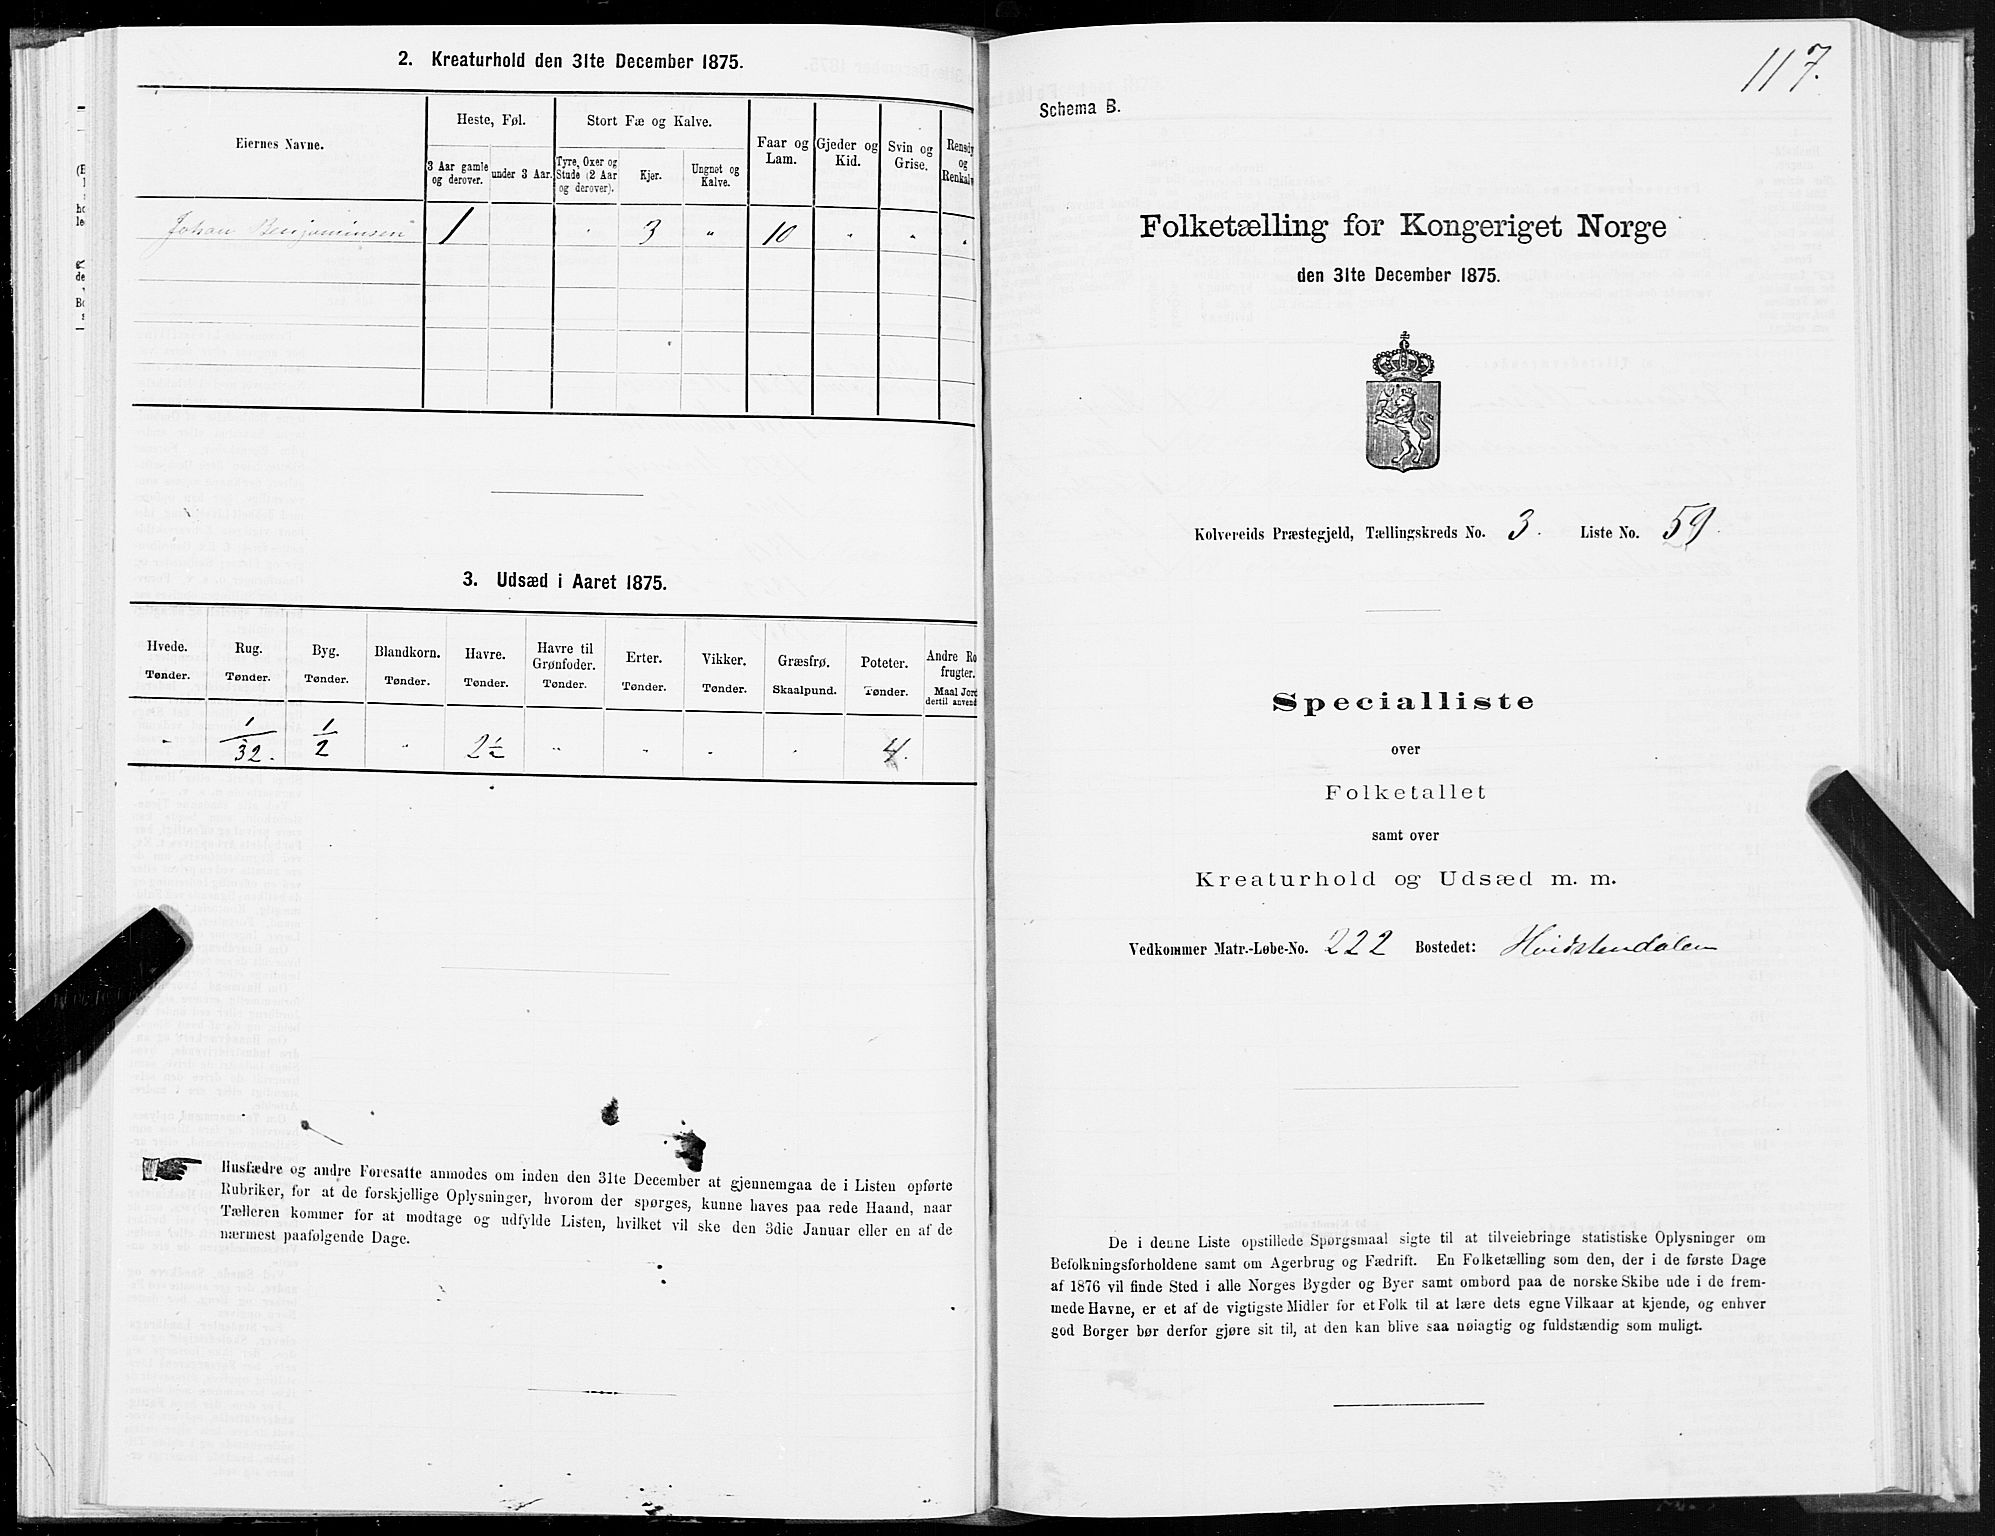 2. Kreaturhold den 31te December 1875.
Eiernes Navne.
Heste, Føl.
Stort Fæ og Kalve.
Faar og Lam.
Gjeder og Kid.
Svin og Grise.
Rensdy og Renkalv
3 Aar gamle og derover.
under 3 Aar.
Tyre, Oxer og Stude (2 Aar og derover).
Kjør.
Ungnøt og Kalve.
Johan Benjaminsen 1 " 3 " 10 " " "
3. Udsæd i Aaret 1875.
Hvede. Rug. Byg. Blandkorn. Havre. Havre til Grønfoder. Erter. Vikker. Græsfrø. Poteter. Andre Ro frugter.
Tønder. Tønder. Tønder. Tønder. Tønder. Tønder. Tønder. Tønder. Skaalpund. Tønder. Maal Jord dertil anvend
" 1/32. 1/2 " 2 1/2 " " " " 4.
Husfædre og andre Foresatte anmodes om inden den 31te December at gjennemgaa de i Listen opførte
Rubriker, for at de forskjellige Oplysninger, hvorom der spørges, kunne haves paa rede Haand, naar
Tælleren kommer for at modtage og udfylde Listen, hvilket vil ske den 3die Januar eller en af de
nærmest paafølgende Dage.
117.
Schema B.
Folketælling for Kongeriget Norge
den 31te December 1875.
Kolvereids Præstegjeld, Tællingskreds No. 3. Liste No. 59.
Specialliste
over
Folketallet
samt over
Kreaturhold og Udsæd m. m.
Vedkommer Matr.-Løbe-No. 222 Bostedet: Hvidstendalen
De i denne Liste opstillede Spørgsmaal sigte til at tilveiebringe statistiske Oplysninger om
Befolkningsforholdene samt om Agerbrug og Fædrift. En Folketælling som den, der i de første Dage
af 1876 vil finde Sted i alle Norges Bygder og Byer samt ombord paa de norske Skibe ude i de frem-
mede Havne, er et af de vigtigste Midler for et Folk til at lære dets egne Vilkaar at kjende, og enhver
god Borger bør derfor gjøre sit til, at den kan blive saa nøiagtig og fuldstændig som muligt.